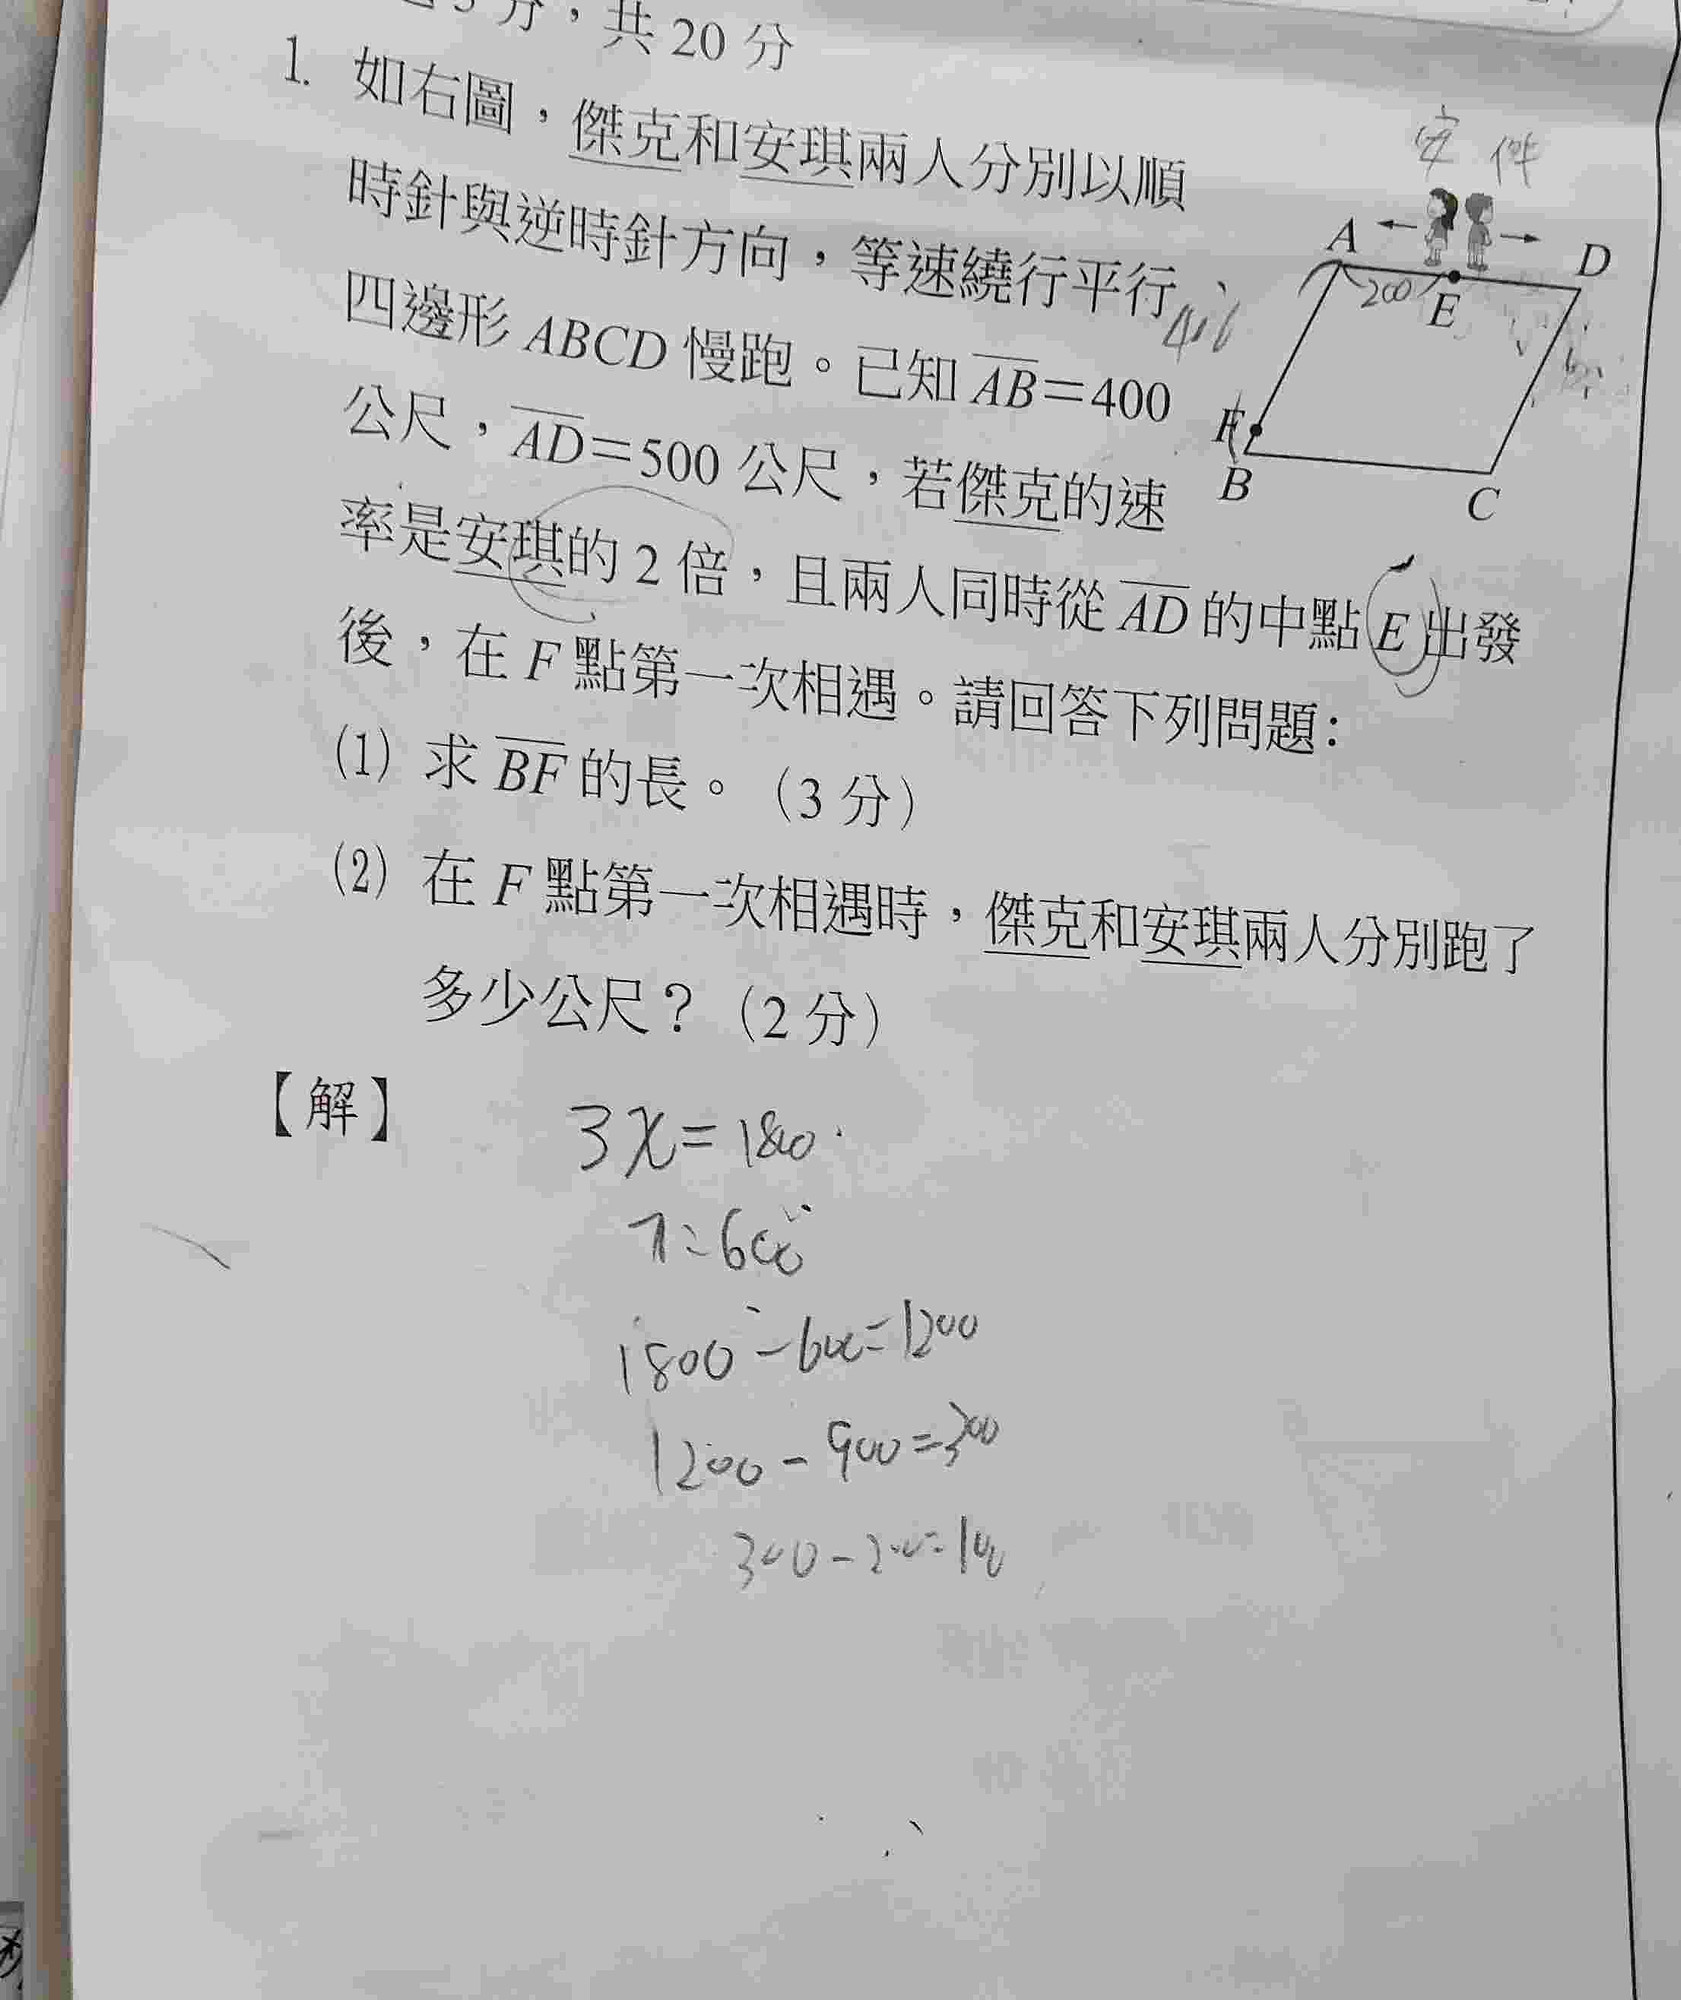 分，共20分
1. 如右圖，傑克和安琪兩人分別以順
時針與逆時針方向，等速繞行平行
四邊形 ABCD 慢跑。已知 AB=400
公尺，AD=500 公尺，若傑克的速
率是安琪的 2 倍，且兩人同時從 AD 的中點 E 出發
後，在 F 點第一次相遇。請回答下列問題：
(1) 求 BF 的長。(3 分)
(2) 在 F 點第一次相遇時，傑克和安琪兩人分別跑了
多少公尺？(2 分)
安 件
A D
200 E
F
B C
【解】
3x=1800
x=600
1800-600=1200
1200-900=300
300-200=100